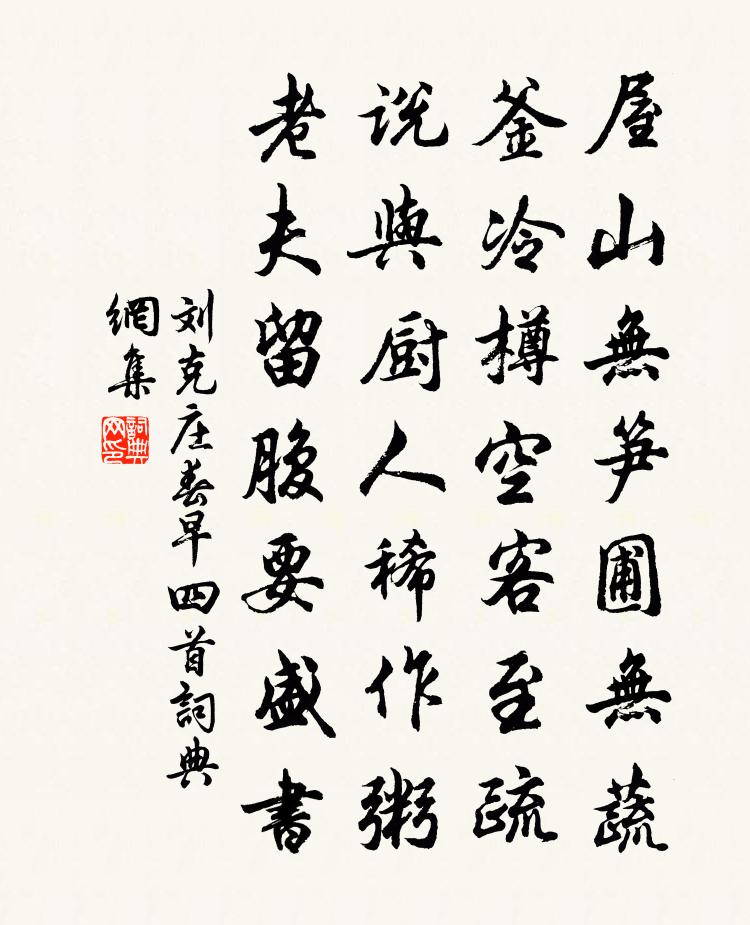 屋山無笋圃無蔬
釜冷樽空客至疏
説與厨人稀作粥
老夫留腹要盛書
刘克庄春早四首詞典
網集
詞典網印